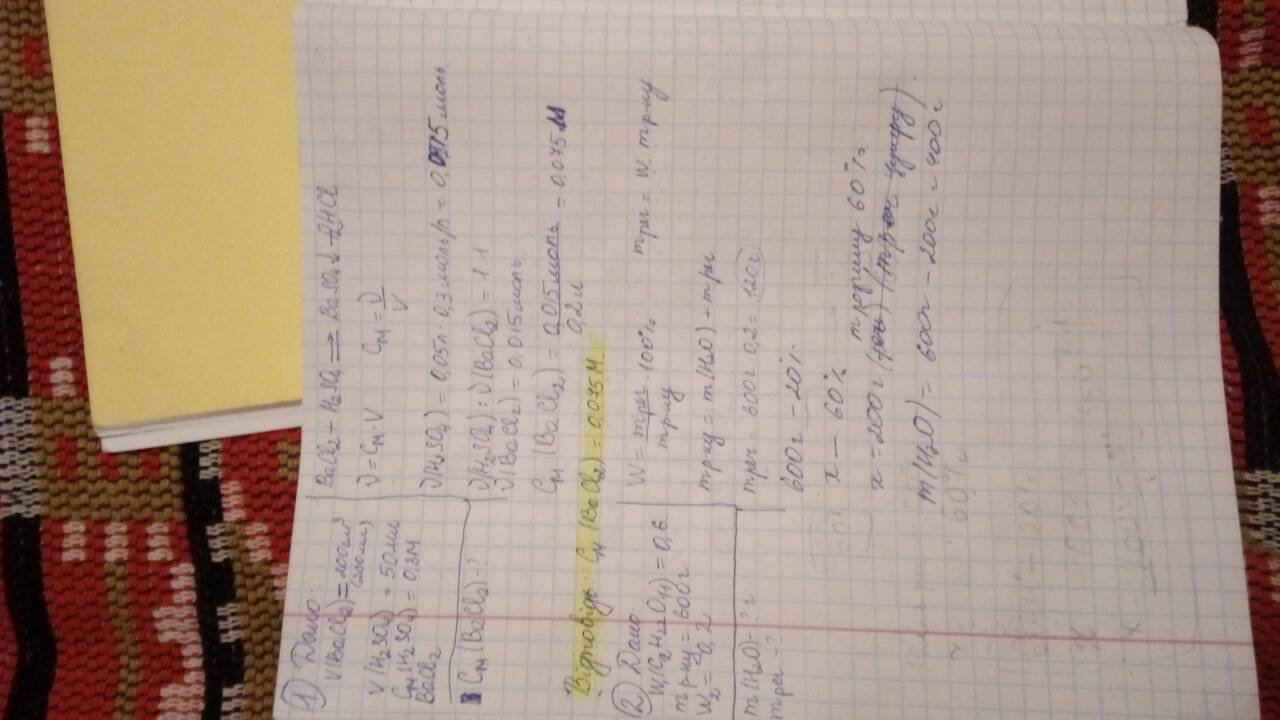 1) Дано:
V(BaCl2) = 200 см³
(200 мл)
V(H2SO4) = 50 мл
CM(H2SO4) = 0,3M
BaCl2
CM(BaCl2) - ?
BaCl2 + H2SO4 = BaSO4↓ + 2HCl
ν = CM · V CM = ν/V
ν(H2SO4) = 0,05л · 0,3 моль/л = 0,015 моль
ν(H2SO4) : ν(BaCl2) = 1:1
ν(BaCl2) = 0,015 моль
CM(BaCl2) = 0,015 моль / 0,2 л = 0,075 M
Відповідь: CM(BaCl2) = 0,075 M.
2) Дано
W(C2H22O11) = 0,6
m р-ну = 600 г
W2 = 0,2
m(H2O) - ? г
m реч - ?
W = m реч / m р-ну · 100% m реч = W · m р-ну
m р-ну = m(H2O) + m реч
m реч = 600г · 0,2 = 120г
600г - 20%
x - 60%
m розчину 60%
x = 200 г
m(H2O) = 600г - 200г = 400г